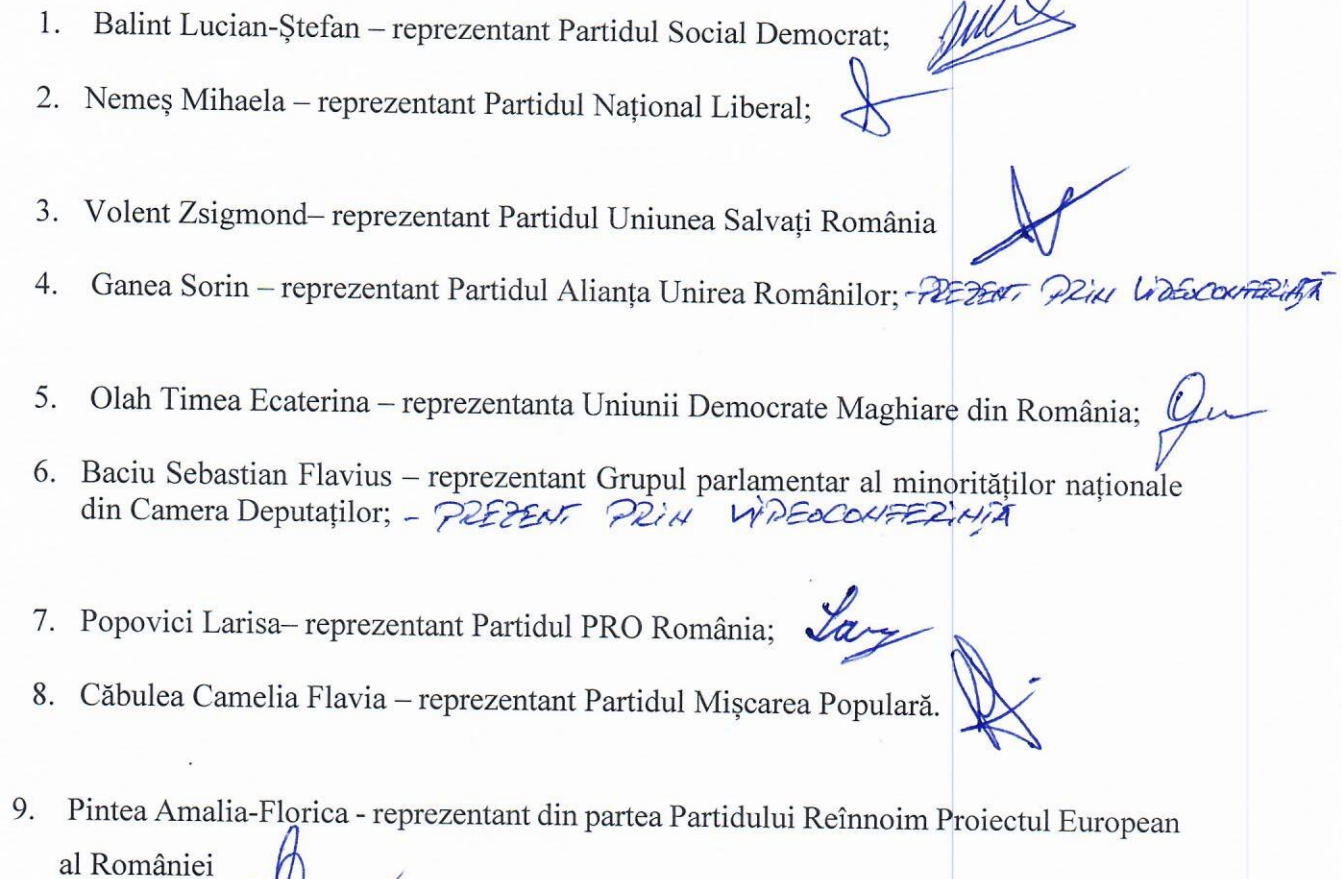 1. Balint Lucian-Ștefan – reprezentant Partidul Social Democrat;
2. Nemeș Mihaela – reprezentant Partidul Național Liberal;
3. Volent Zsigmond– reprezentant Partidul Uniunea Salvați România
4. Ganea Sorin – reprezentant Partidul Alianța Unirea Românilor; - PREZENT PRIN VIDEOCONFERINȚĂ
5. Olah Timea Ecaterina – reprezentanta Uniunii Democrate Maghiare din România;
6. Baciu Sebastian Flavius – reprezentant Grupul parlamentar al minorităților naționale
din Camera Deputaților; - PREZENT PRIN VIDEOCONFERINȚĂ
7. Popovici Larisa– reprezentant Partidul PRO România;
8. Căbulea Camelia Flavia – reprezentant Partidul Mișcarea Populară.
9. Pintea Amalia-Florica - reprezentant din partea Partidului Reînnoim Proiectul European
al României